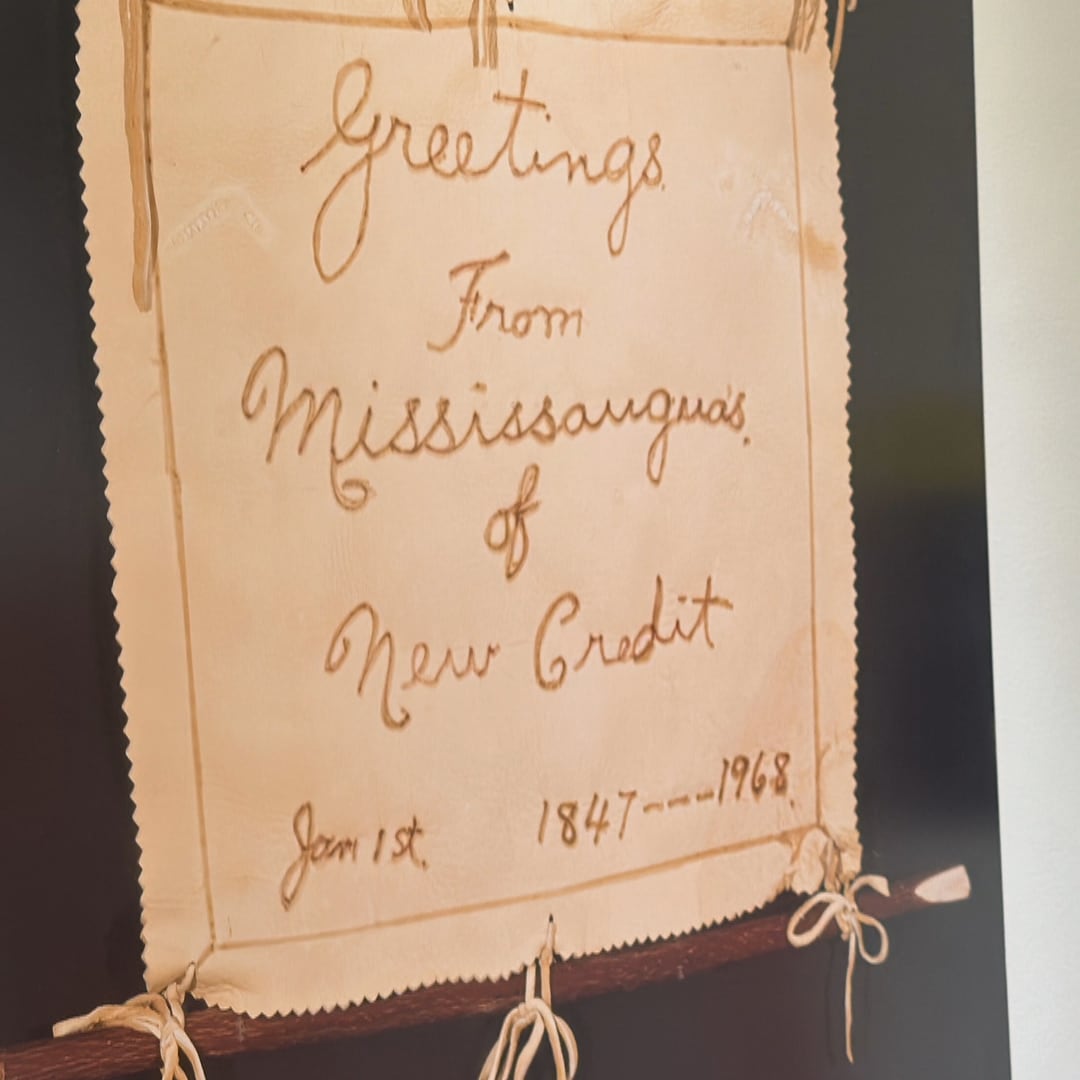 Greetings
From
Mississaugua's
of
New Credit
Jan 1st. 1847----1968.